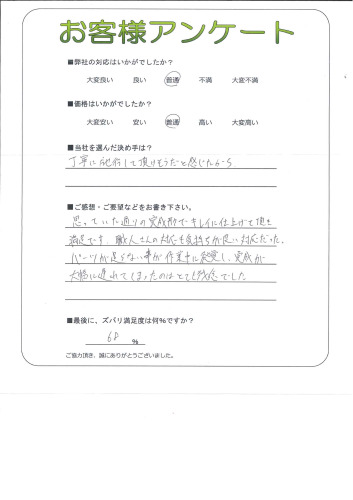 お客様アンケート
■弊社の対応はいかがでしたか？
大変良い 良い 普通 不満 大変不満
■価格はいかがでしたか？
大変安い 安い 普通 高い 大変高い
■当社を選んだ決め手は？
丁寧に施術して頂けそうだと感じたから
■ご感想・ご要望などをお書き下さい。
思っていた通りの完成形でキレイに仕上げて頂き
満足です。職人さんの対応も気持ちが良い対応だった。
パーツが足らない事が作業中に発覚し、完成が
大幅に遅れてしまったのはとても残念でした
■最後に、ズバリ満足度は何%ですか？
68 %
ご協力頂き、誠にありがとうございました。